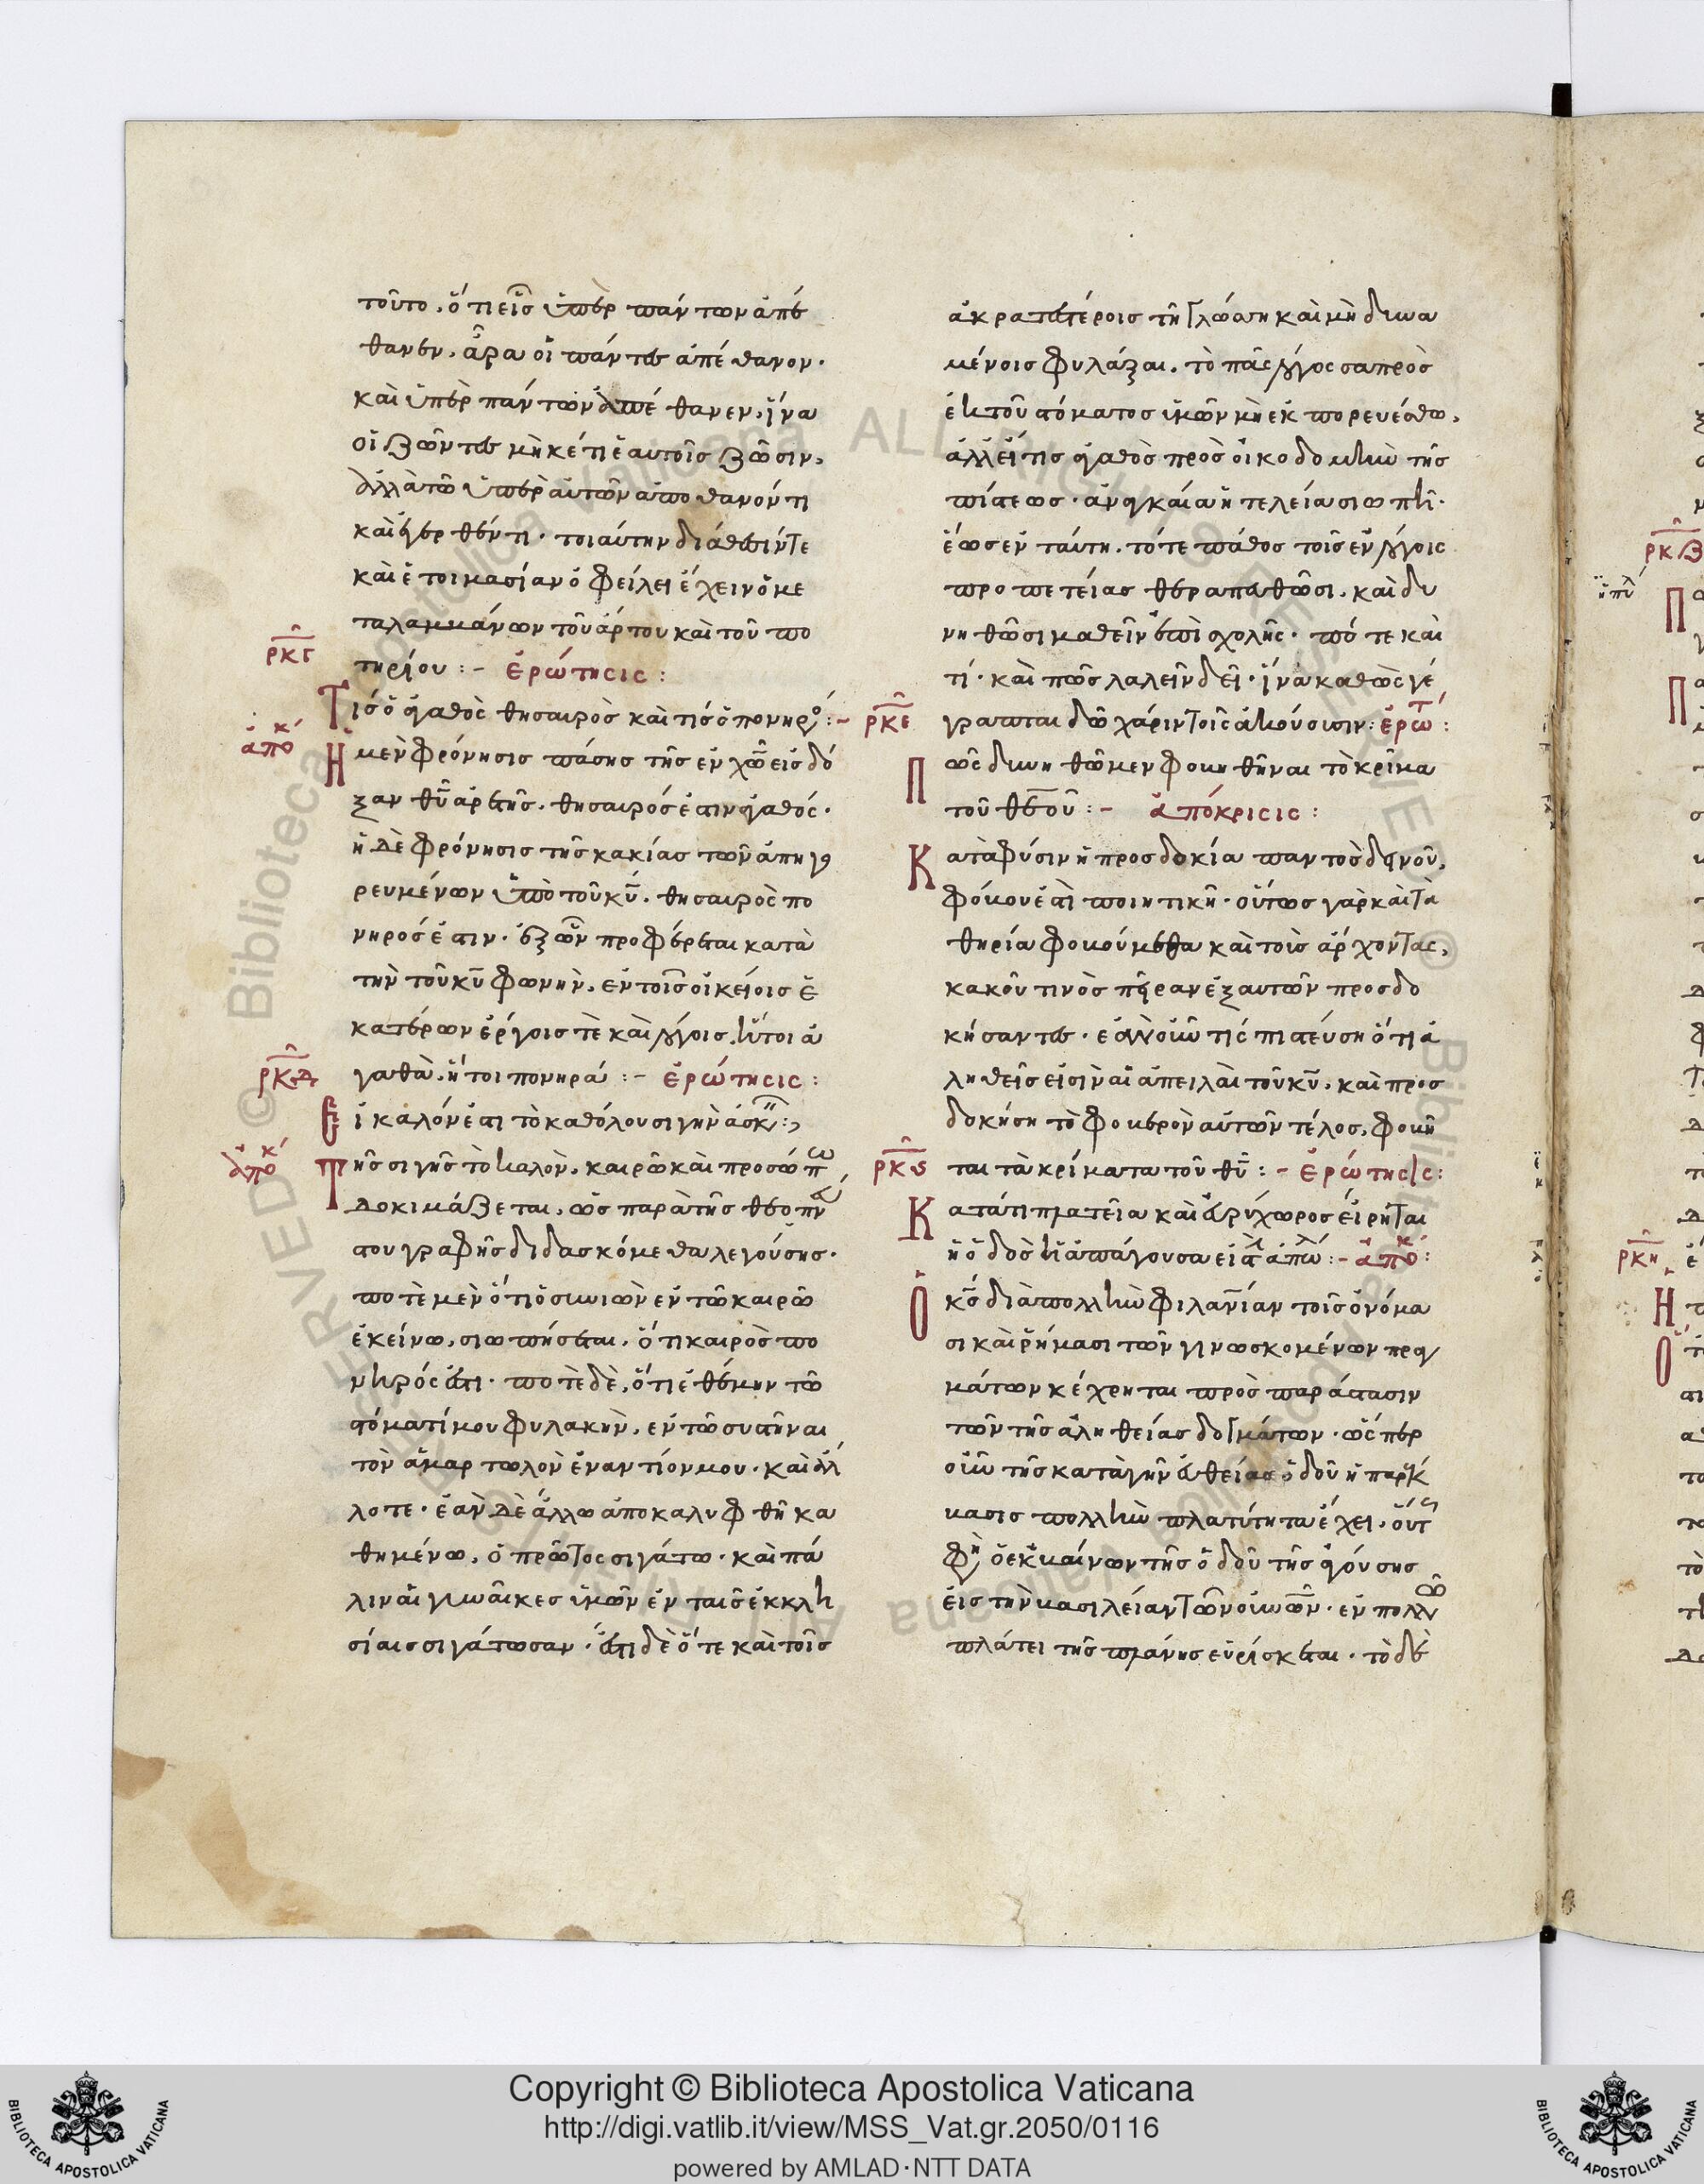 τοῦτο, ὅτι εἷς ὑπὲρ πάντων ἀπέ
θανεν, ἄρα οἱ πάντες ἀπέθανον·
καὶ ὑπὲρ πάντων ἀπέθανεν, ἵνα
οἱ ζῶντες μηκέτι ἑαυτοῖς ζῶσιν,
ἀλλὰ τῷ ὑπὲρ αὐτῶν ἀποθανόντι
καὶ ἐγερθέντι· τοιαύτην διάθεσίν τε
καὶ ἑτοιμασίαν ὀφείλει ἔχειν ὁ με
ταλαμβάνων τοῦ ἄρτου καὶ τοῦ πο
ρκγ
τηρίου :- ἐρώτησις :
Τίς ὁ ἀγαθὸς θησαυρὸς καὶ τίς ὁ πονηρό :-
ἀποκ
Ἡ μὲν φρόνησις πάσης τῆς ἐν χω εἰς δό
ξαν θυ ἀρετῆς, θησαυρός ἐστιν ἀγαθός·
ἡ δὲ φρόνησις τῆς κακίας τῶν ἀπηγο
ρευμένων ὑπὸ τοῦ κυ, θησαυρὸς πο
νηρός ἐστιν· ἐξ ὧν προφέρεται κατὰ
τὴν τοῦ κυ φωνὴν, ἐν τοῖς οἰκείοις ἑ
κατέρων ἔργοις τὲ καὶ λόγοις, ἤτοι ἀ
ρκδ
γαθὰ, ἤτοι πονηρά :- ἐρώτησις :
Εἰ καλόν ἐστι τὸ καθόλου σιγὴν ἀσκ :
ἀποκ
Τῆς σιγῆς τὸ καλὸν, καιρῷ καὶ προσώπω
δοκιμάζεται, ὡς παρὰ τῆς θεοπν
στου γραφῆς διδασκόμεθα λεγούσης·
ποτὲ μὲν ὅτι ὁ συνιὼν ἐν τῷ καιρῷ
ἐκείνω, σιωπήσεται, ὅτι καιρὸς πο
νηρός ἐστι· ποτὲ δὲ, ὅτι ἐθέμην τῷ
στόματί μου φυλακὴν, ἐν τῷ συστῆναι
τὸν ἁμαρτωλὸν ἐναντίον μου· καὶ ἄλ
λοτε· ἐὰν δὲ ἄλλω ἀποκαλυφθῇ κα
θημένω, ὁ πρῶτος σιγάτω· καὶ πά
λιν αἱ γυναῖκες ὑμῶν ἐν ταῖς ἐκκλη
σίαις σιγάτωσαν· ἔστι δὲ ὅτε καὶ τοῖς
ἀκρατεστέροις τῇ γλώσση καὶ μὴ δυνα
μένοις φυλάξαι, τὸ πᾶς λόγος σαπρὸς
ἐκ τοῦ στόματος ὑμῶν μὴ ἐκπορευέσθω,
ἀλλ' εἴ τις ἀγαθὸς πρὸς οἰκοδομὴν τῆς
πίστεως· ἀναγκαία ἡ τελεία σιωπή·
ἕως ἐν ταύτη, τό τε πάθος τοῖς ἐν λόγοις
προπετείας θεραπευθῶσι, καὶ δυ
νηθῶσι μαθεῖν ἐπὶ σχολῆς· πότε καὶ
τί· καὶ πῶς λαλεῖν δεῖ· ἵνα καθὼς γέ
ρκε
γραπται δῷ χάριν τοῖς ἀκούουσιν : ἐρώτ :
Πῶς δυνηθῶμεν φοβηθῆναι τὸ κρίμα
τοῦ θεοῦ :- ἀπόκρισις :
Κατὰ φύσιν ἡ προσδοκία παντὸς δεινοῦ,
φόβου ἐστὶ ποιητική· οὕτως γὰρ καὶ τὰ
θηρία φοβούμεθα καὶ τοὺς ἄρχοντας,
κακοῦ τινὸς πεῖραν ἐξ αὐτῶν προσδο
κήσαντες· ἐὰν οὖν τίς πιστεύση ὅτι ἀ
ληθεῖς εἰσὶν αἱ ἀπειλαὶ τοῦ κυ, καὶ προσ
δοκήση τὸ φοβερὸν αὐτῶν τέλος, φοβῆ
ρκς
ται τὰ κρίματα τοῦ θυ :- ἐρώτησις :
Κατά τι πλατεῖα καὶ εὐρύχωρος εἴρηται
ἡ ὁδὸς ἡ ἀπάγουσα εἰς τὴν ἀπώλ :- ἀποκ :
Ὁ κς διὰ πολλὴν φιλανίαν τοῖς ὀνόμα
σι καὶ ῥήμασι τῶν γινωσκομένων πραγ
μάτων κέχρηται πρὸς παράστασιν
τῶν τῆς ἀληθείας δογμάτων· ὥσπερ
οὖν τῆς κατὰ γῆν εὐθείας ὁδοῦ ἡ παρέκ
βασις πολλὴν πλατύτητα ἔχει, οὕτως
φη ὁ ἐκβαίνων τῆς ὁδοῦ τῆς ἀγούσης
εἰς τὴν βασιλείαν τῶν οὐνῶν· ἐν πολλῶ
πλάτει τῆς πλάνης εὑρίσκεται· τὸ δὲ